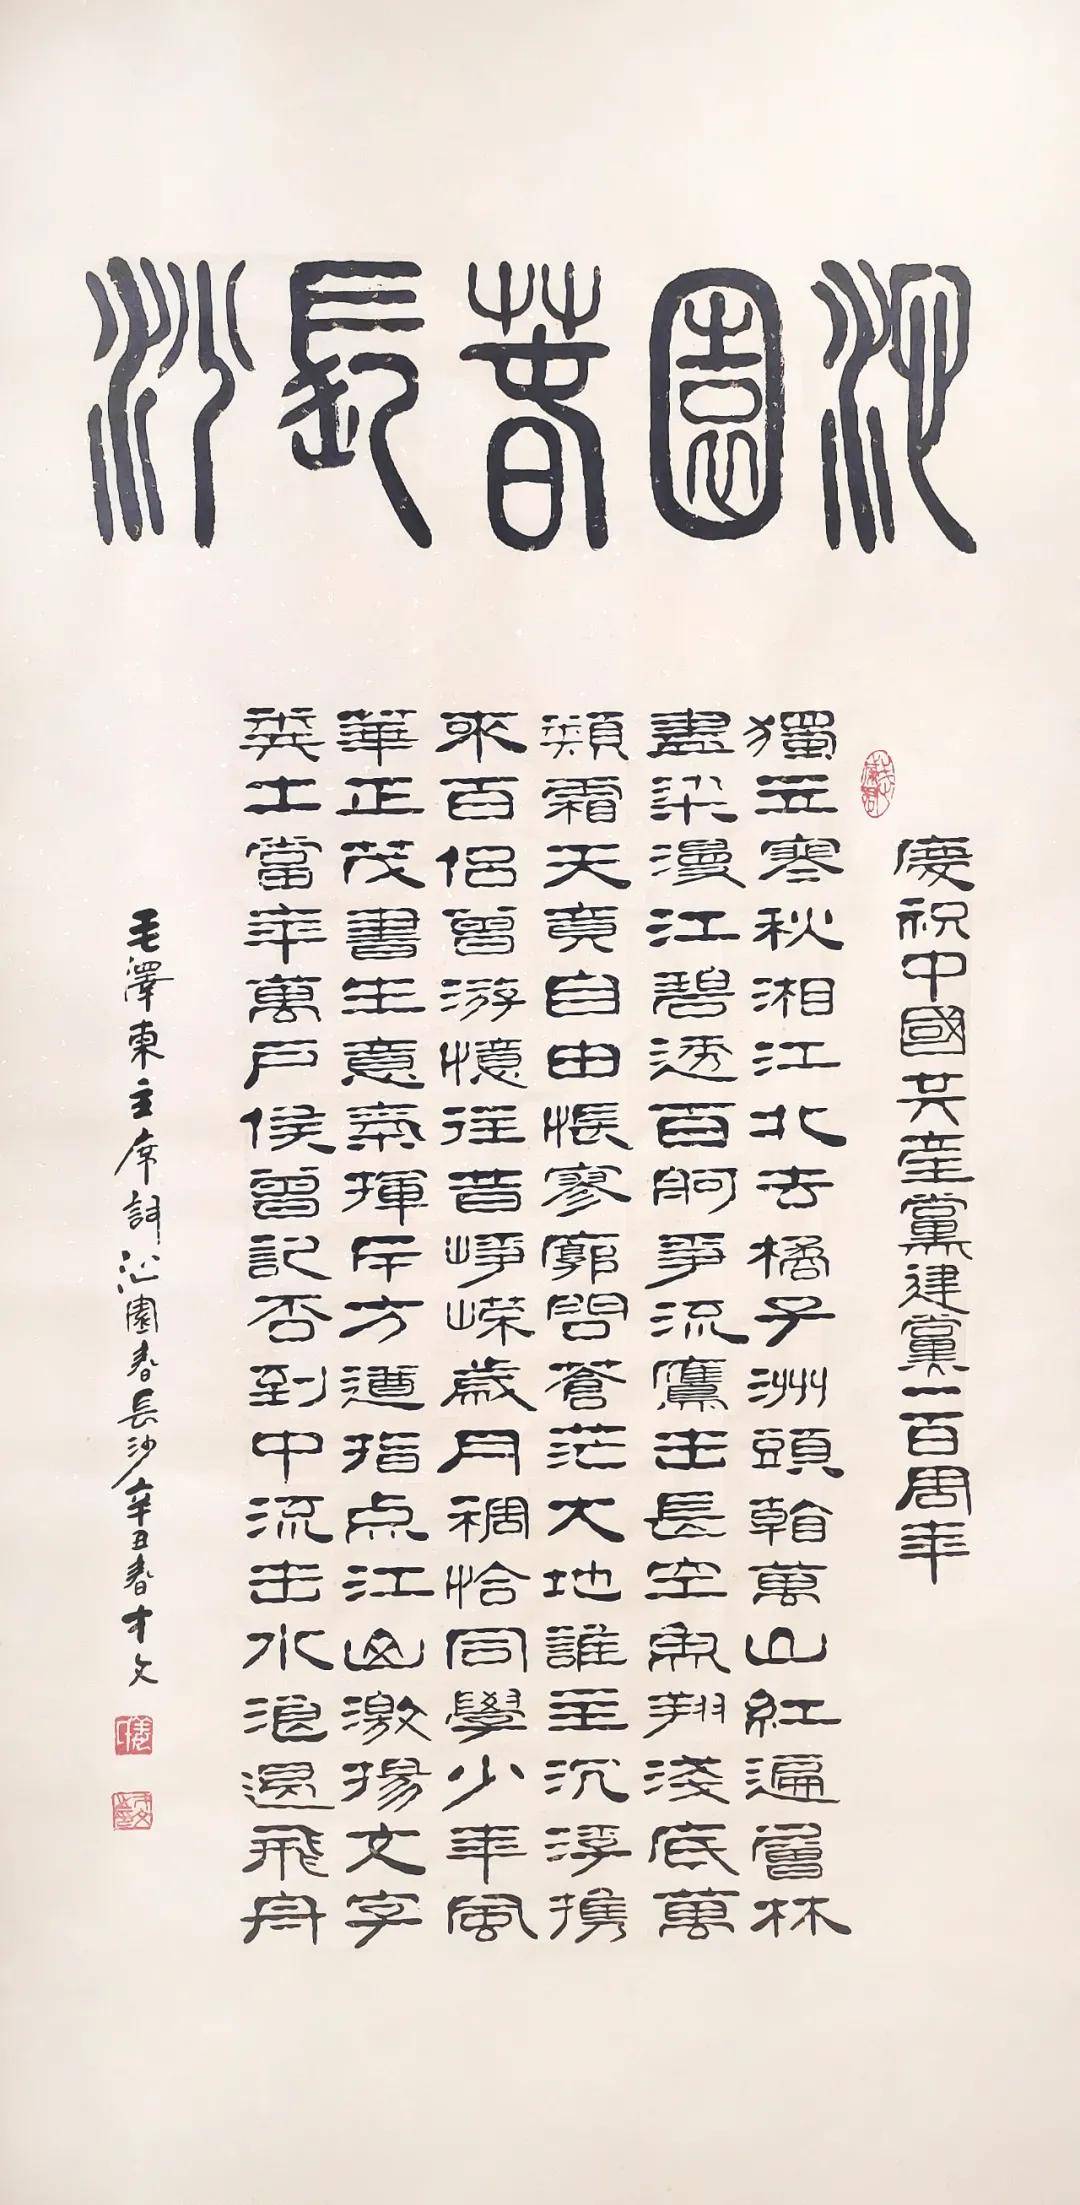 沁園春長沙
慶祝中國共產黨建黨一百周年
獨立寒秋湘江北去橘子洲頭看萬山紅遍層林
盡染漫江碧透百舸爭流鷹擊長空魚翔淺底萬
類霜天竟自由悵寥廓問蒼茫大地誰主沉浮攜
來百侶曾游憶往昔崢嶸歲月稠恰同學少年風
華正茂書生意氣揮斥方遒指点江山激揚文字
糞土當年萬戶侯曾記否到中流擊水浪遏飛舟
毛澤東主席詞沁園春長沙辛丑春才文